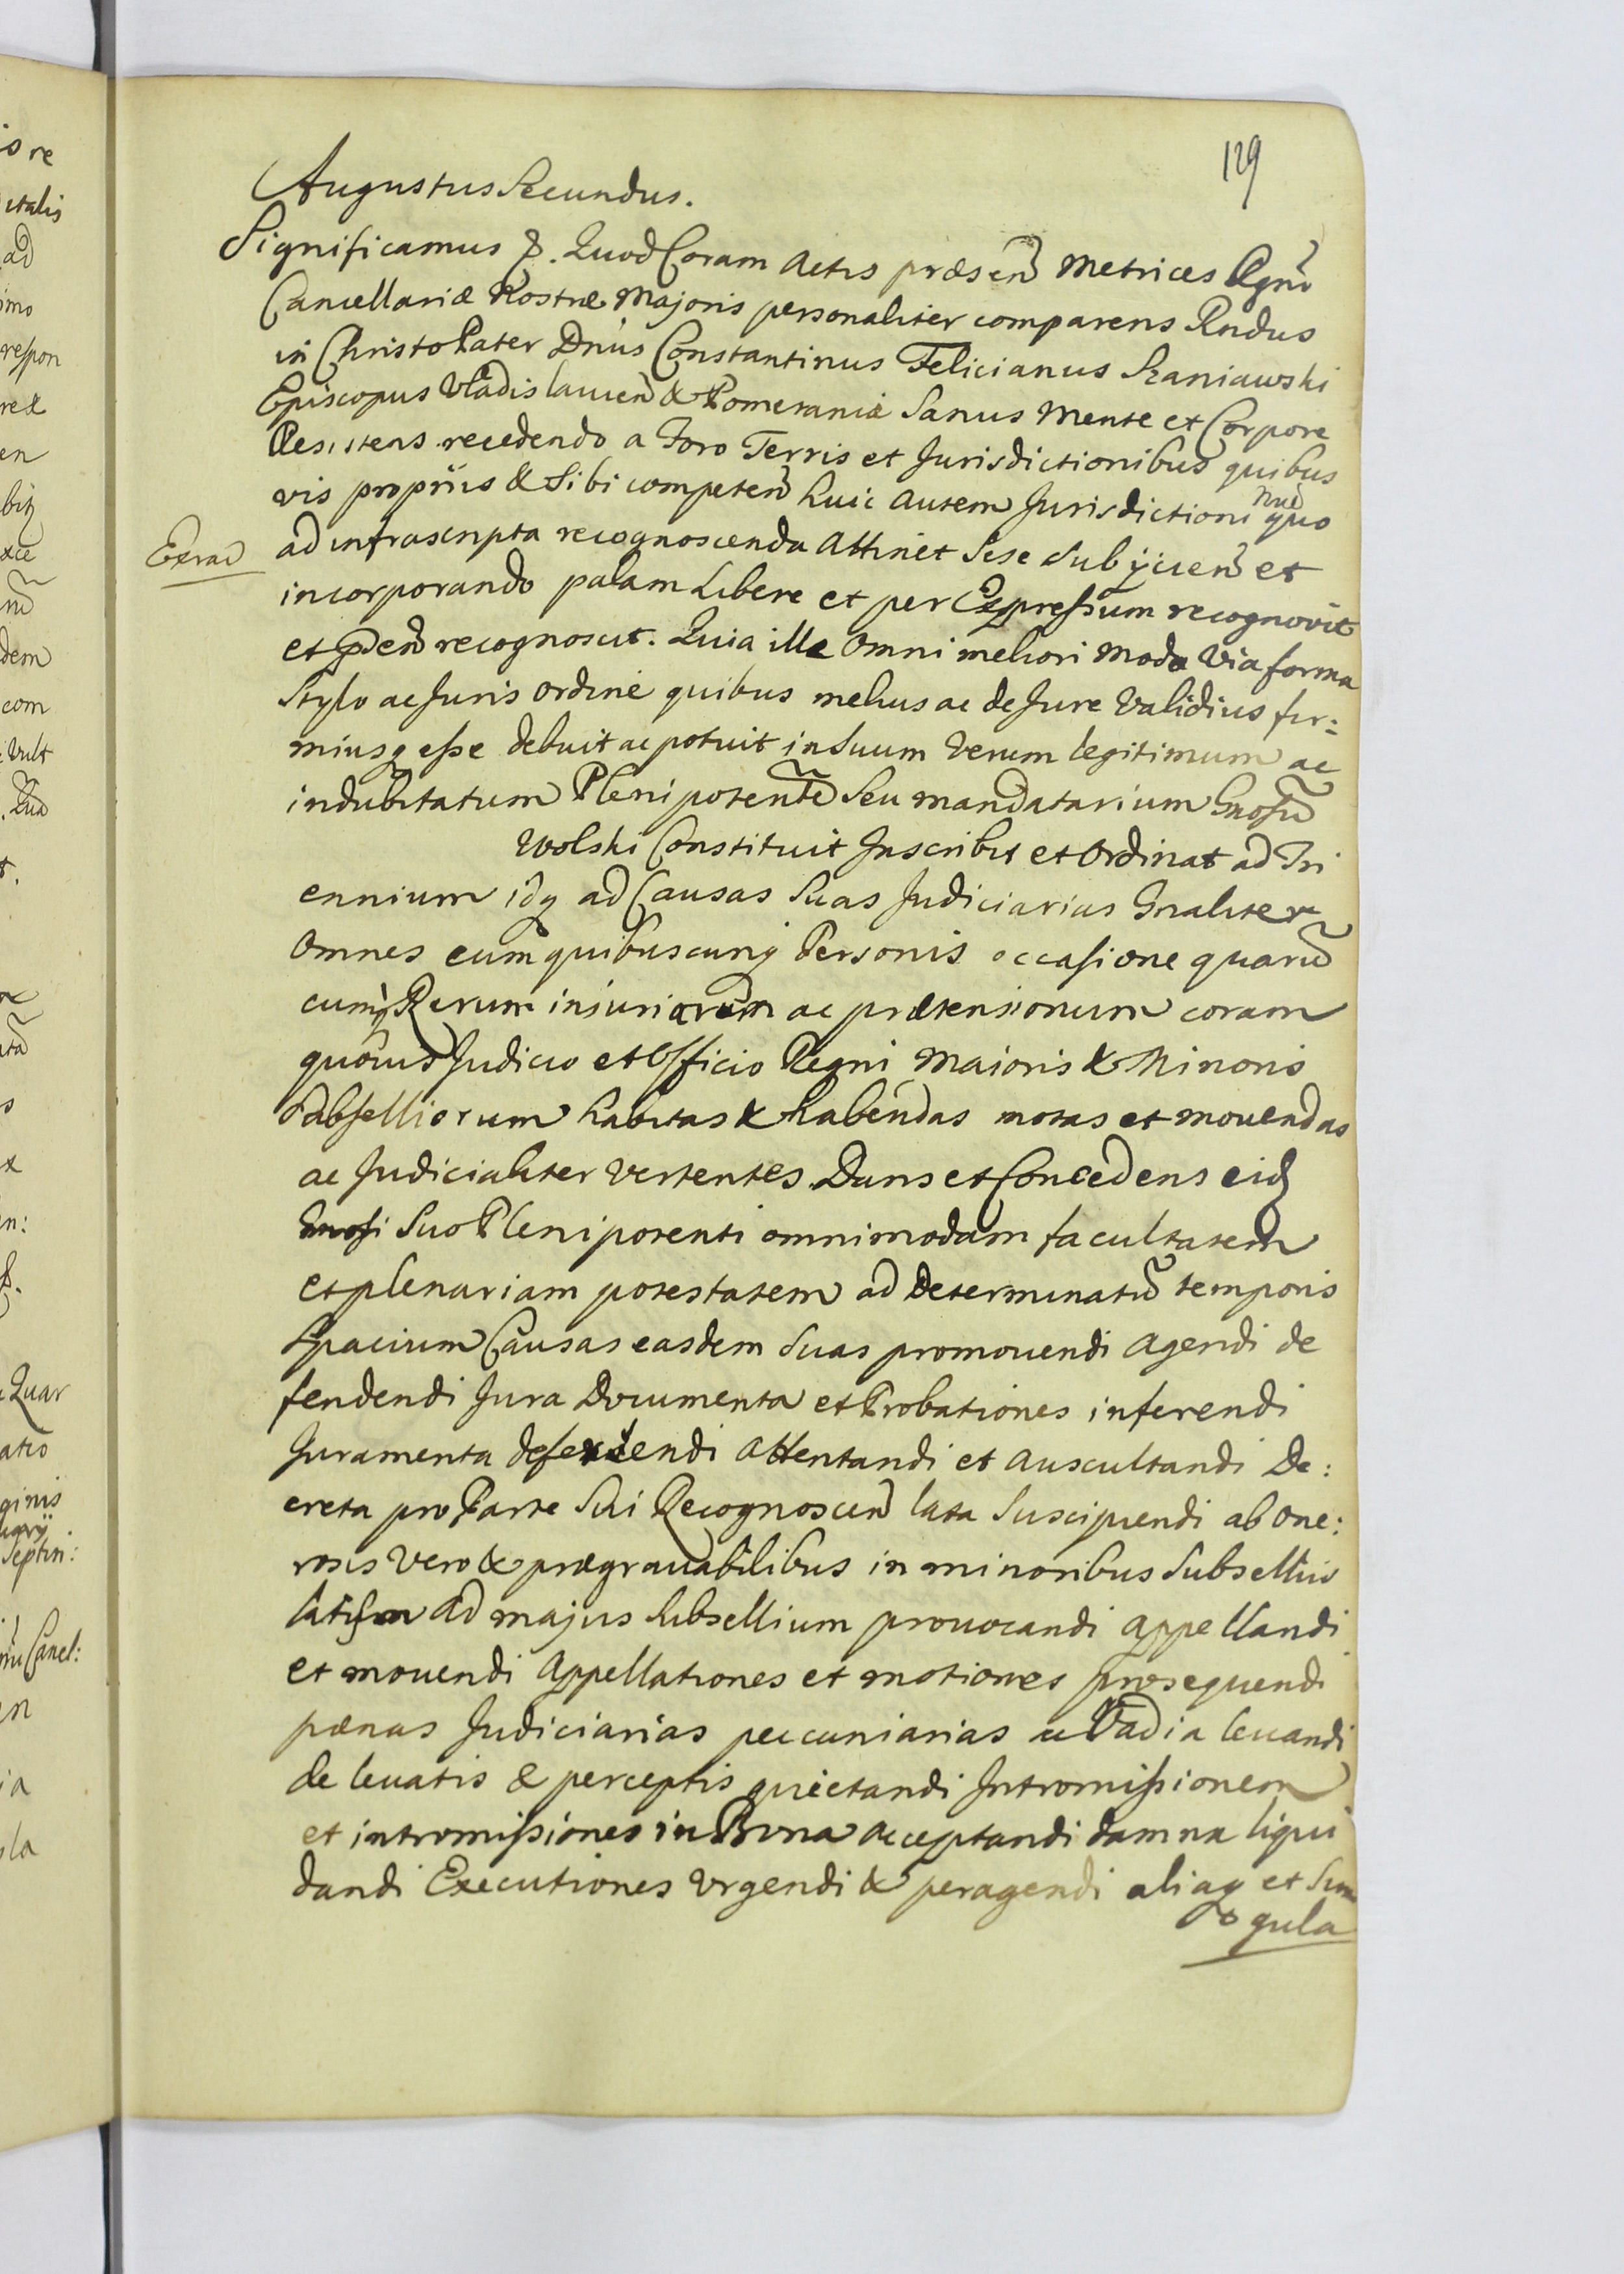 129
Augustus Secundus.
Significamus &. Quod Coram Actis præsen Metrices Regni
Cancellariæ Nostræ Majoris personaliter comparens Rndus
in Christo Pater Dnus Constantinus Felicianus Szaniawski
Episcopus Vladislavien & Pomeraniæ Sanus Mente et Corpore
Existens recedendo a Foro Terris et Jurisdictionibus quibus
vis propriis & Sibi competen huic autem Jurisdictioni quo
Exrad
ad infrascripta recognoscenda Attinet Sese Subijcien et
incorporando palam Libere et per Expressum recognovit
et recognoscit. Quia ille Omni meliori modo Via forma
Stylo ac Juris ordine quibus melius ac de Jure Validius fir:
miusq esse debuit ac potuit in Suum Verum legitimum ac
indubitatum Plenipotente Seu mandatarium Gnosu
Wolski Constituit Inscribit et Ordinat ad Tri
ennium idq ad Causas Suas Judiciarias Gnaliter
Omnes cum quibuscunq Personis occasione quaru
cunq Rerum injuriarum ac prætensionum coram
quovis Judicio et Officio Regni Maioris & Minoris
Subselliorum habitas & habendas motas et movendas
ac Judicialiter vertentes Dans et Concedens eid
Gnosi Suo Plenipotenti omnimodam facultatem
et plenariam potestatem ad Determinatu temporis
Spacium Causas easdem Suas promovendi Agendi de
fendendi Jura Documenta et Probationes inferendi
Juramenta deferendi Attentandi et Auscultandi De:
creta pro Parte Sui Recognoscen lata Suscipiendi ab one:
rosis Vero & prægravabilibus in minoribus Subselliis
latis ad majus Subsellium provocandi appellandi
et movendi Appellationes et motiones prosequendi
pænas Judiciarias peccuniarias ac Vadia levandi
de levatis & perceptis quietandi Intromissionem
et intromissiones in Bona acceptandi damna liqui
dandi Executiones Urgendi & peragendi aliaq et Sin
gula